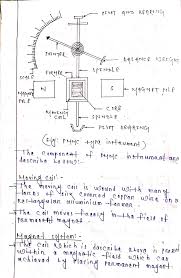 PIVOT AND BEARING
POINTER
BALANCE WEIGHT
FORMER
SPINDLE
N
S
MAGNET POLE
POLE
CORE
MOVING
COIL
SPINDLE
PIVOT BEARING
(Fig: PMMC type instrument)
The component of PMMC instrument are
describe below:-
Moving coil:-
The moving coil is wound with many
turns of copper wire on a
rectangular aluminium former.
The coil moves freely in the field of
permanent magnet.
Magnet system:-
The coil which is describe above is placed
within a magnetic field which can
achieved by placing permanent magnet.